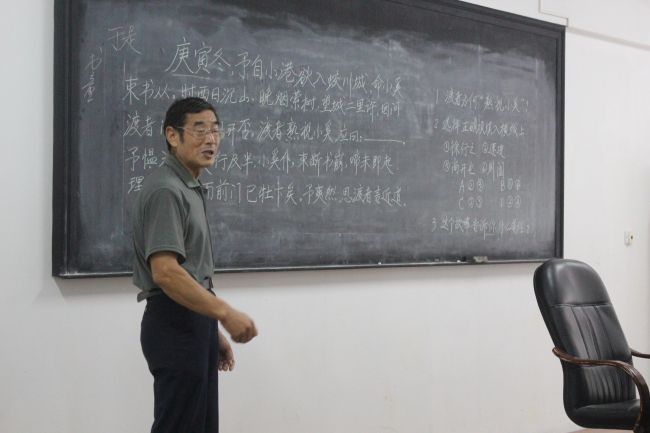 书童
庚寅冬，予自小港欲入蛟川城，命小奚
束书从。时西日沉山，晚烟萦树，望城二里许，因问
渡者 开否，渡者熟视小奚，应曰：
予愠 行及半，小奚仆，束断书崩，啼未即起
理 而前门已牡下矣。予爽然，思渡者言近道。
1 渡者为何"熟视小奚"？
2 选择正确 填入横线上
①徐行之 ②速进
③尚开也 ④则阖
A B
C D
3 这个故事告诉你什么哲理？